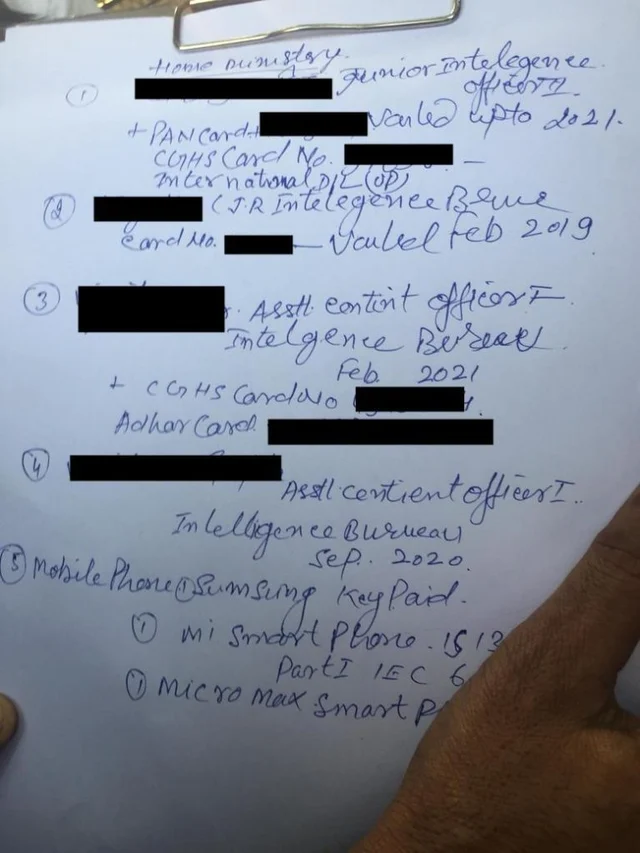 Home ministery.
① Junior Intelegence
officer II.
+ PAN Card + Vailed upto 2021.
CGHS Card No. —
International D/L (OP)
② (J.R Intelegence
Card No. — Vailed Feb 2019
③ Asstt. contint officer I
Intelgence Bureau.
Feb 2021
+ CGHS Card No
Adhar Card.
④
Asstt. centient officer I.
Intelligence Burueau
Sep. 2020.
⑤ Mobile Phone ① Sumsung Key Paid.
① mi smart Phone. IS 13
Part I IEC 6
① micro max smart